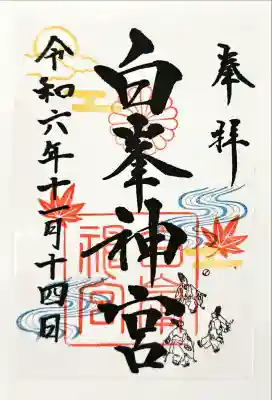 奉拝
白峯神宮
令和六年十一月十四日